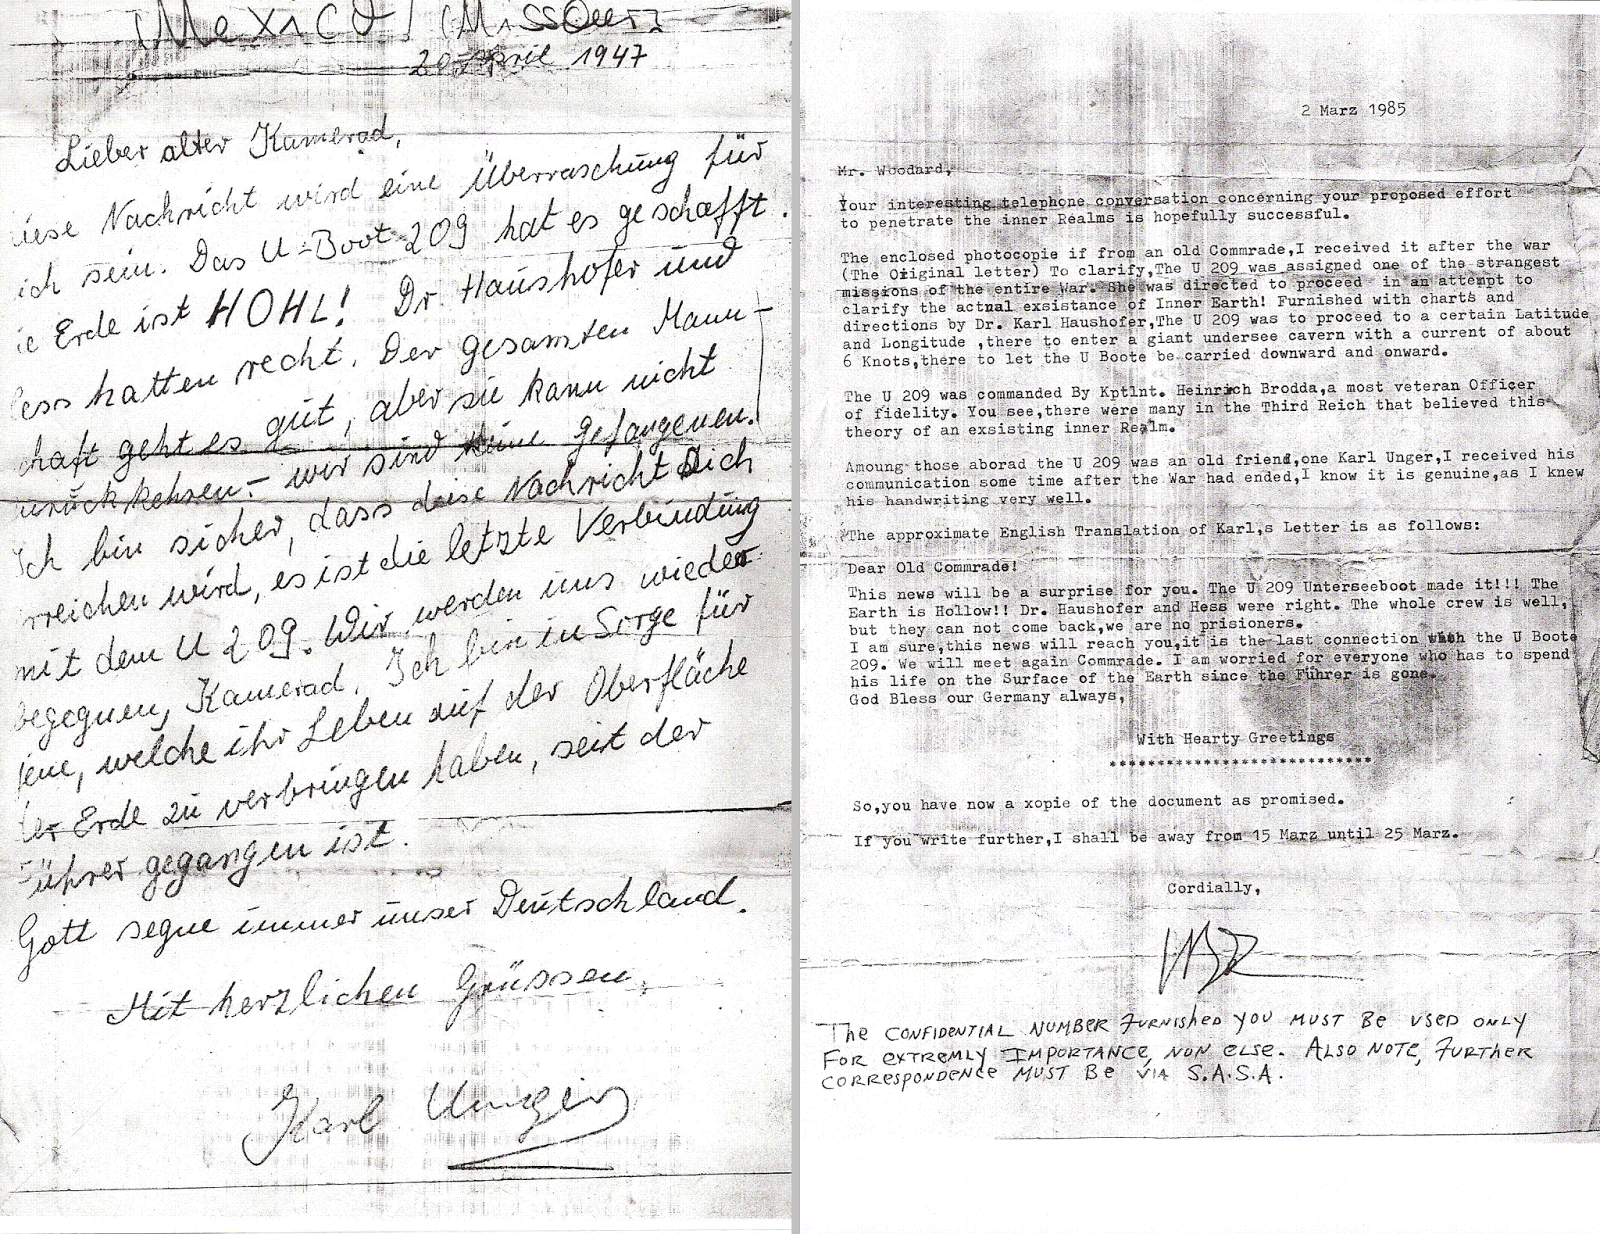 Mexico / (Missouri)
20 April 1947
Lieber alter Kamerad,
iese Nachricht wird eine Überraschung für
ich sein. Das U-Boot 209 hat es geschafft.
ie Erde ist HOHL! Dr. Haushofer und
ess hatten recht. Der gesamten Mann-
chaft geht es gut, aber sie kann nicht
urückkehren. - wir sind keine gefangenen.
Ich bin sicher, dass diese Nachricht Dich
rreichen wird, es ist die letzte Verbindung
mit dem U 209. Wir werden uns wieder
begegnen, Kamerad. Ich bin in Sorge für
jene, welche ihr Leben auf der Oberfläche
der Erde zu verbringen haben, seit der
Führer gegangen ist.
Gott segne immer unser Deutschland.
Mit herzlichen Grüssen,
Karl Unger
2 Marz 1985
Mr. Woodard,
Your interesting telephone conversation concerning your proposed effort
to penetrate the inner Realms is hopefully successful.
The enclosed photocopie if from an old Commrade,I received it after the war
(The Original letter) To clarify,The U 209 was assigned one of the strangest
missions of the entire War. She was directed to proceed in an attempt to
clarify the actual exsistance of Inner Earth! Furnished with charts and
directions by Dr. Karl Haushofer,The U 209 was to proceed to a certain Latitude
and Longitude ,there to enter a giant undersee cavern with a current of about
6 Knots,there to let the U Boote be carried downward and onward.
The U 209 was commanded By Kptlnt. Heinrich Brodda,a most veteran Officer
of fidelity. You see,there were many in the Third Reich that believed this
theory of an exsisting inner Realm.
Amoung those aborad the U 209 was an old friend,one Karl Unger,I received his
communication some time after the War had ended,I know it is genuine,as I knew
his handwriting very well.
The approximate English Translation of Karl,s Letter is as follows:
Dear Old Commrade!
This news will be a surprise for you. The U 209 Unterseeboot made it!!! The
Earth is Hollow!! Dr. Haushofer and Hess were right. The whole crew is well,
but they can not come back,we are no prisioners.
I am sure,this news will reach you,it is the last connection with the U Boote
209. We will meet again Commrade. I am worried for everyone who has to spend
his life on the Surface of the Earth since the Führer is gone.
God Bless our Germany always,
With Hearty Greetings
***************************
So,you have now a xopie of the document as promised.
If you write further,I shall be away from 15 Marz until 25 Marz.
Cordially,
THE CONFIDENTIAL NUMBER FURNISHED YOU MUST BE USED ONLY
FOR EXTREMLY IMPORTANCE, NON ELSE. ALSO NOTE, FURTHER
CORRESPONDENCE MUST BE VIA S.A.S.A.